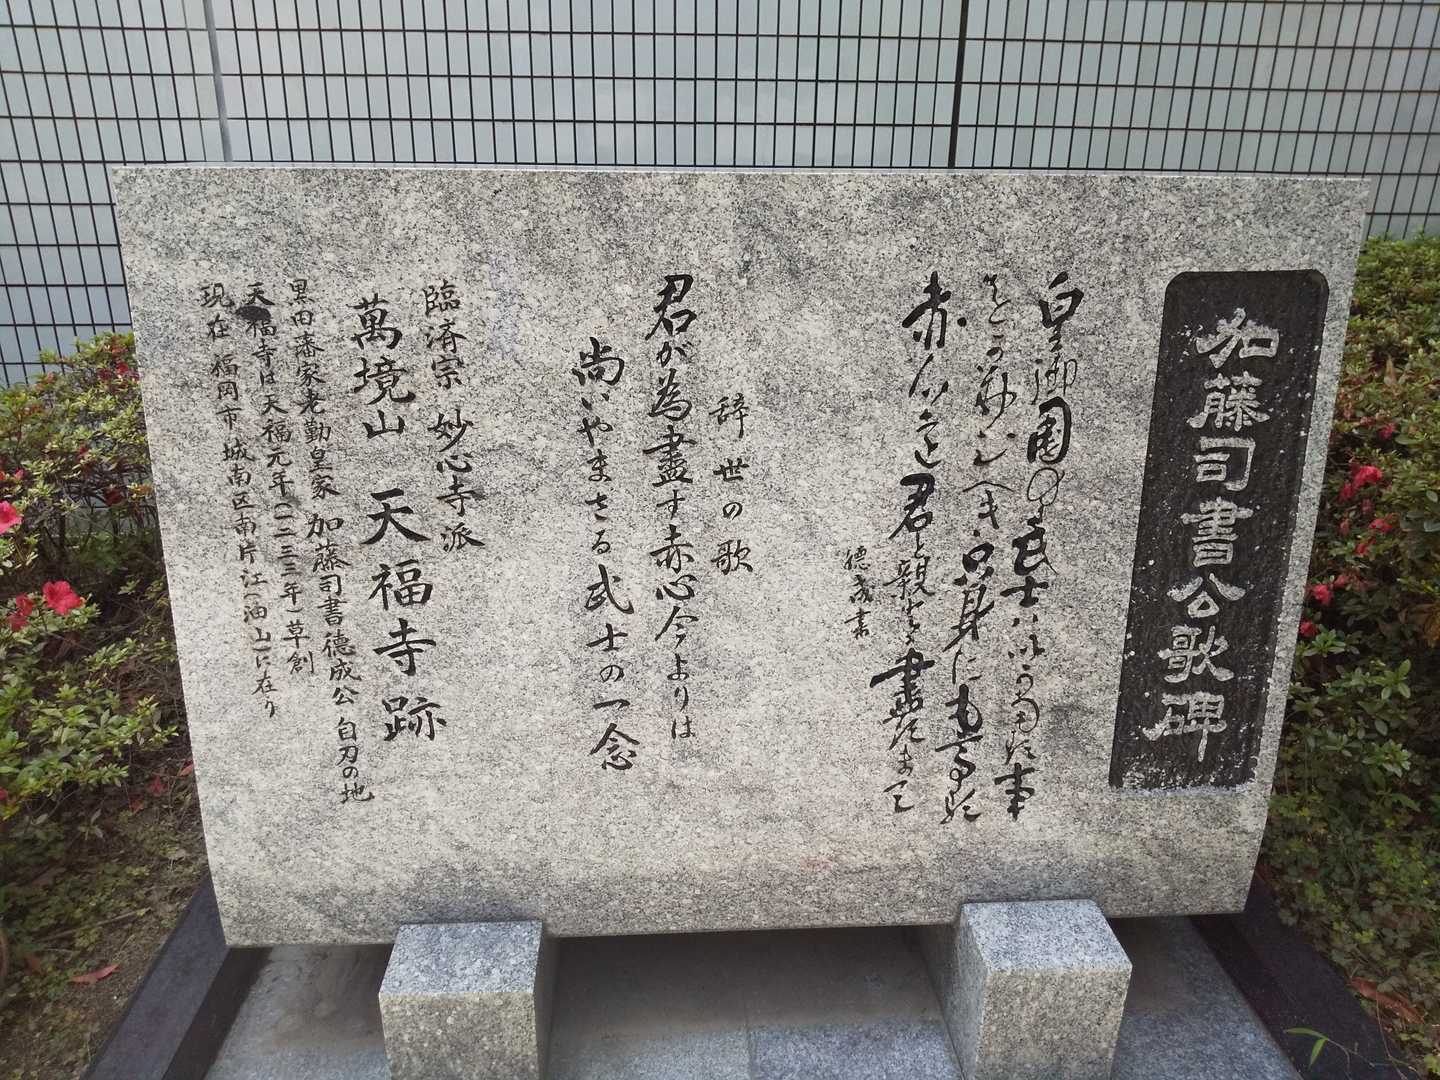 加藤司書公歌碑
皇御国の武士はいかなる事
をか務むべき只身にもてる
赤心を君と親とに尽すまで
徳成書
辞世の歌
君が為盡す赤心今よりは
尚いやまさる武士の一念
臨済宗 妙心寺派
萬境山 天福寺跡
黒田藩家老勤皇家 加藤司書徳成公 自刃の地
天福寺は天福元年(一二三三年)草創
現在 福岡市城南区南片江(油山)に在り